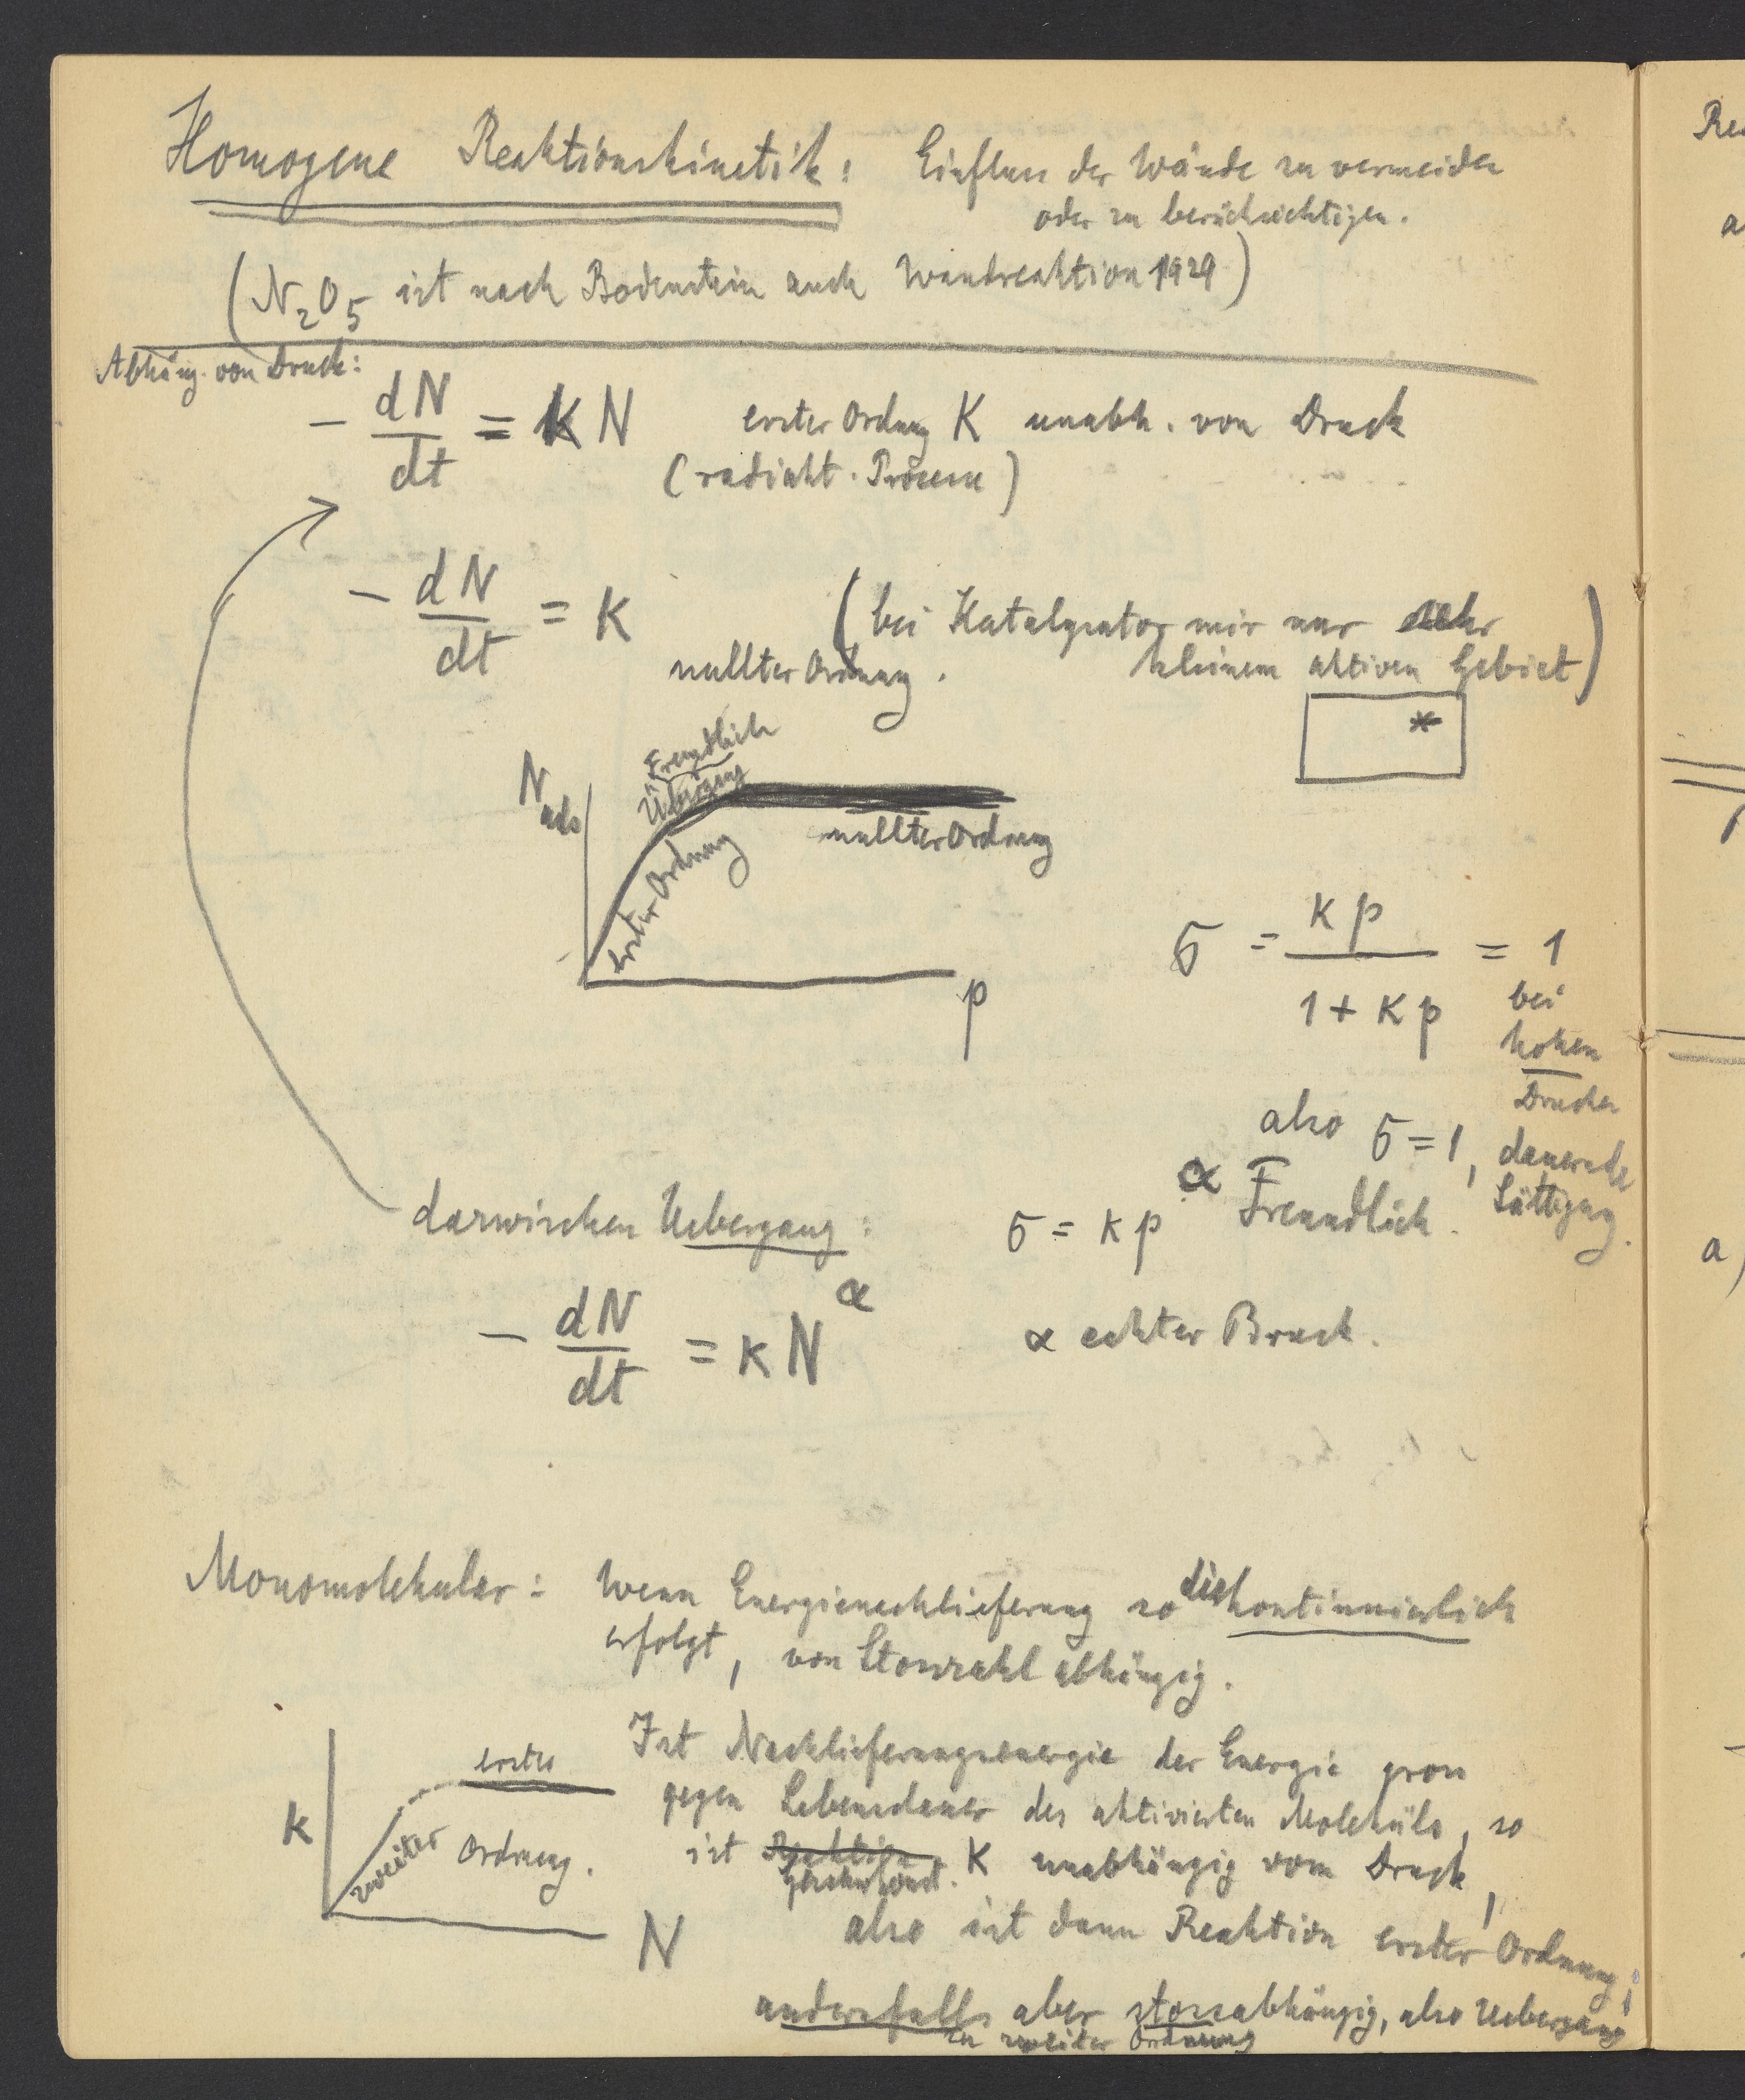 Homogene Reaktionskinetik: Einfluss der Wände zu vermeiden
oder zu berücksichtigen.
(N₂O₅ ist nach Bodenstein auch Wandreaktion 1929)
Abhäng. von Druck:
- dN/dt = K N erster Ordnung K unabh. von Druck
(radioakt. Prozesse)
- dN/dt = K (bei Katalysator mit nur sehr
nullter Ordnung. kleinem aktiven Gebiet)
*
Freundlich
Übergang
N ads
nullter Ordnung
erster Ordnung
p
σ = K p / 1 + K p = 1
bei
hohen
Drucken
also σ = 1, dauernde
Sättigung.
dazwischen Uebergang: σ = K p^α Freundlich.
- dN/dt = K N^α α echter Bruch.
Monomolekular: Wenn Energienachlieferung so diskontinuierlich
erfolgt, von Stosszahl abhängig.
Ist Nachlieferungsenergie der Energie gross
erster
gegen Lebensdauer des aktivierten Moleküls, so
K
zweiter Ordnung.
ist K unabhängig vom Druck,
N
also ist dann Reaktion erster Ordnung;
andernfalls aber stossabhängig, also Uebergang
zu zweiter Ordnung
Re
a
a)